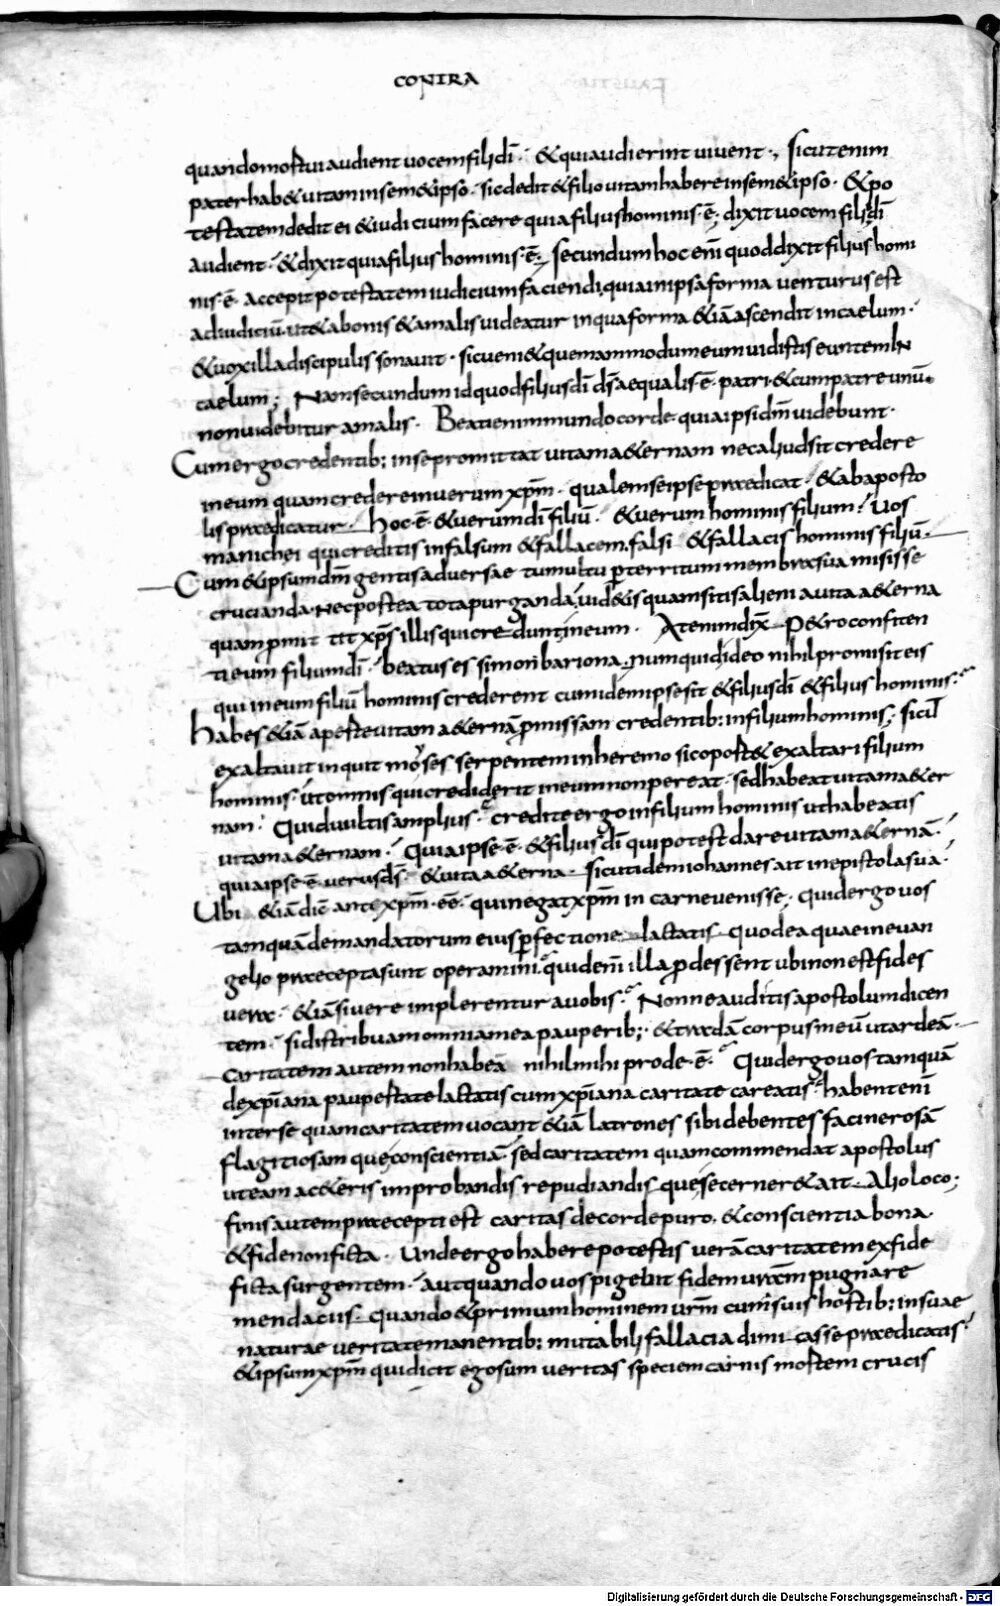 CONTRA
quando mortui audient uocem filii dī · & qui audierint uiuent ·, Sicut enim
pater hab& uitam in sem&ipso · sic dedit & filio uitam habere in sem&ipso · & po
testatem dedit ei & iudicium facere quia filius hominis · ē ; dixit uocem filii dī
audient · & dixit quia filius hominis · ē ·, Secundum hoc enī quod dixit filius homi
nis · ē · accepit potestatem iudicium faciendi, quia in ipsa forma uenturus est
ad iudiciū · ut & a bonis & a malis uideatur in qua forma & iā ascendit in caelum ·
& uox illa discipulis sonauit · sic ueni& quemammodum eum uidistis euntem in
caelum ; Nam secundum id quod filius dī dš aequalis · ē · patri · & cum patre unū ·
non uidebitur a malis · Beati enim mundo corde · quia ipsi dm̄ uidebunt ·
Cum ergo credentib; in se promittat uitam a&ernam nec aliud sit credere
in eum quam credere in uerum xp̄m · qualem se ipse praedicat · & ab aposto
lis praedicatur · hoc · ē · & uerum dī filiū · & uerum hominis filium · Uos
manichei qui creditis in falsum & fallacem, falsi & fallacis hominis filiū ·
Cum & ipsum dm̄ gentis aduersae tumultu p̄territum membra sua misisse
crucianda · nec postea tota purganda, uid&is quam sitis alieni a uita a&erna
quam p̄mittit xp̄s illis qui credunt in eum · At enim dix̄ P&ro confiten
ti eum filium dī · beatus es simon bariona · numquid ideo nihil promisit eis
qui in eum filiū hominis crederent cum idem ipse sit & filius dī & filius hominis ·
Habes & iā aperte uitam a&ernā p̄missam credentib; in filium hominis ; sicut
exaltauit inquit moyses serpentem in heremo sic oport& exaltari filium
hominis · ut omnis qui crediderit in eum non pereat · sed habeat uitam a&er
nam · Quid uultis amplius · credite ergo in filium hominis ut habeatis
uitam a&ernam · Quia ipse · ē · & filius dī qui potest dare uitam a&ernā ·
quia ipse · ē · uerus dš · & uita a&erna · sicut idem iohannes ait in epistola sua ·
Ubi & iā dic̄ antexp̄m · eē · qui negat xp̄m in carne uenisse · Quid ergo uos
tamquā de mandatorum eius p̄fectione iactatis Quod ea quae in euan
gelio praecepta sunt operamini · quid enī illa p̄dessent ubi non est fides
uera · & iā si uere implerentur a uobis · Nonne auditis apostolum dicen
tem · si distribuam omnia mea pauperib; · & tradā corpus meū ut ardeā ·
caritatem autem non habeā nihil mihi prode · ē · Quid ergo uos tamquā
de xp̄iana paupertate iactatis cum xp̄iana caritate careatis · habent enī
inter se quam caritatem uocant & iā latrones sibi debentes facinerosā
flagitiosamque conscientiā · sed caritatem quam commendat apostolus
ut eam a c&eris improbandis repudiandisque secerner& ait · Alio loco ;
finis autem praecepti est caritas de corde puro, & conscientia bona ·
& fide non ficta · Unde ergo habere potestis uerā caritatem ex fide
ficta surgentem · aut quando uos pigebit fidem uram̄ pugnare
mendaciis · Quando & primum hominem urm̄ cum suis hostib; in suae
naturae ueritate manentib; mutabili fallacia dimicasse praedicatis ·
& ipsum xp̄m qui dicit ego sum ueritas speciem carnis mortem crucis
Digitalisierung gefördert durch die Deutsche Forschungsgemeinschaft - DFG